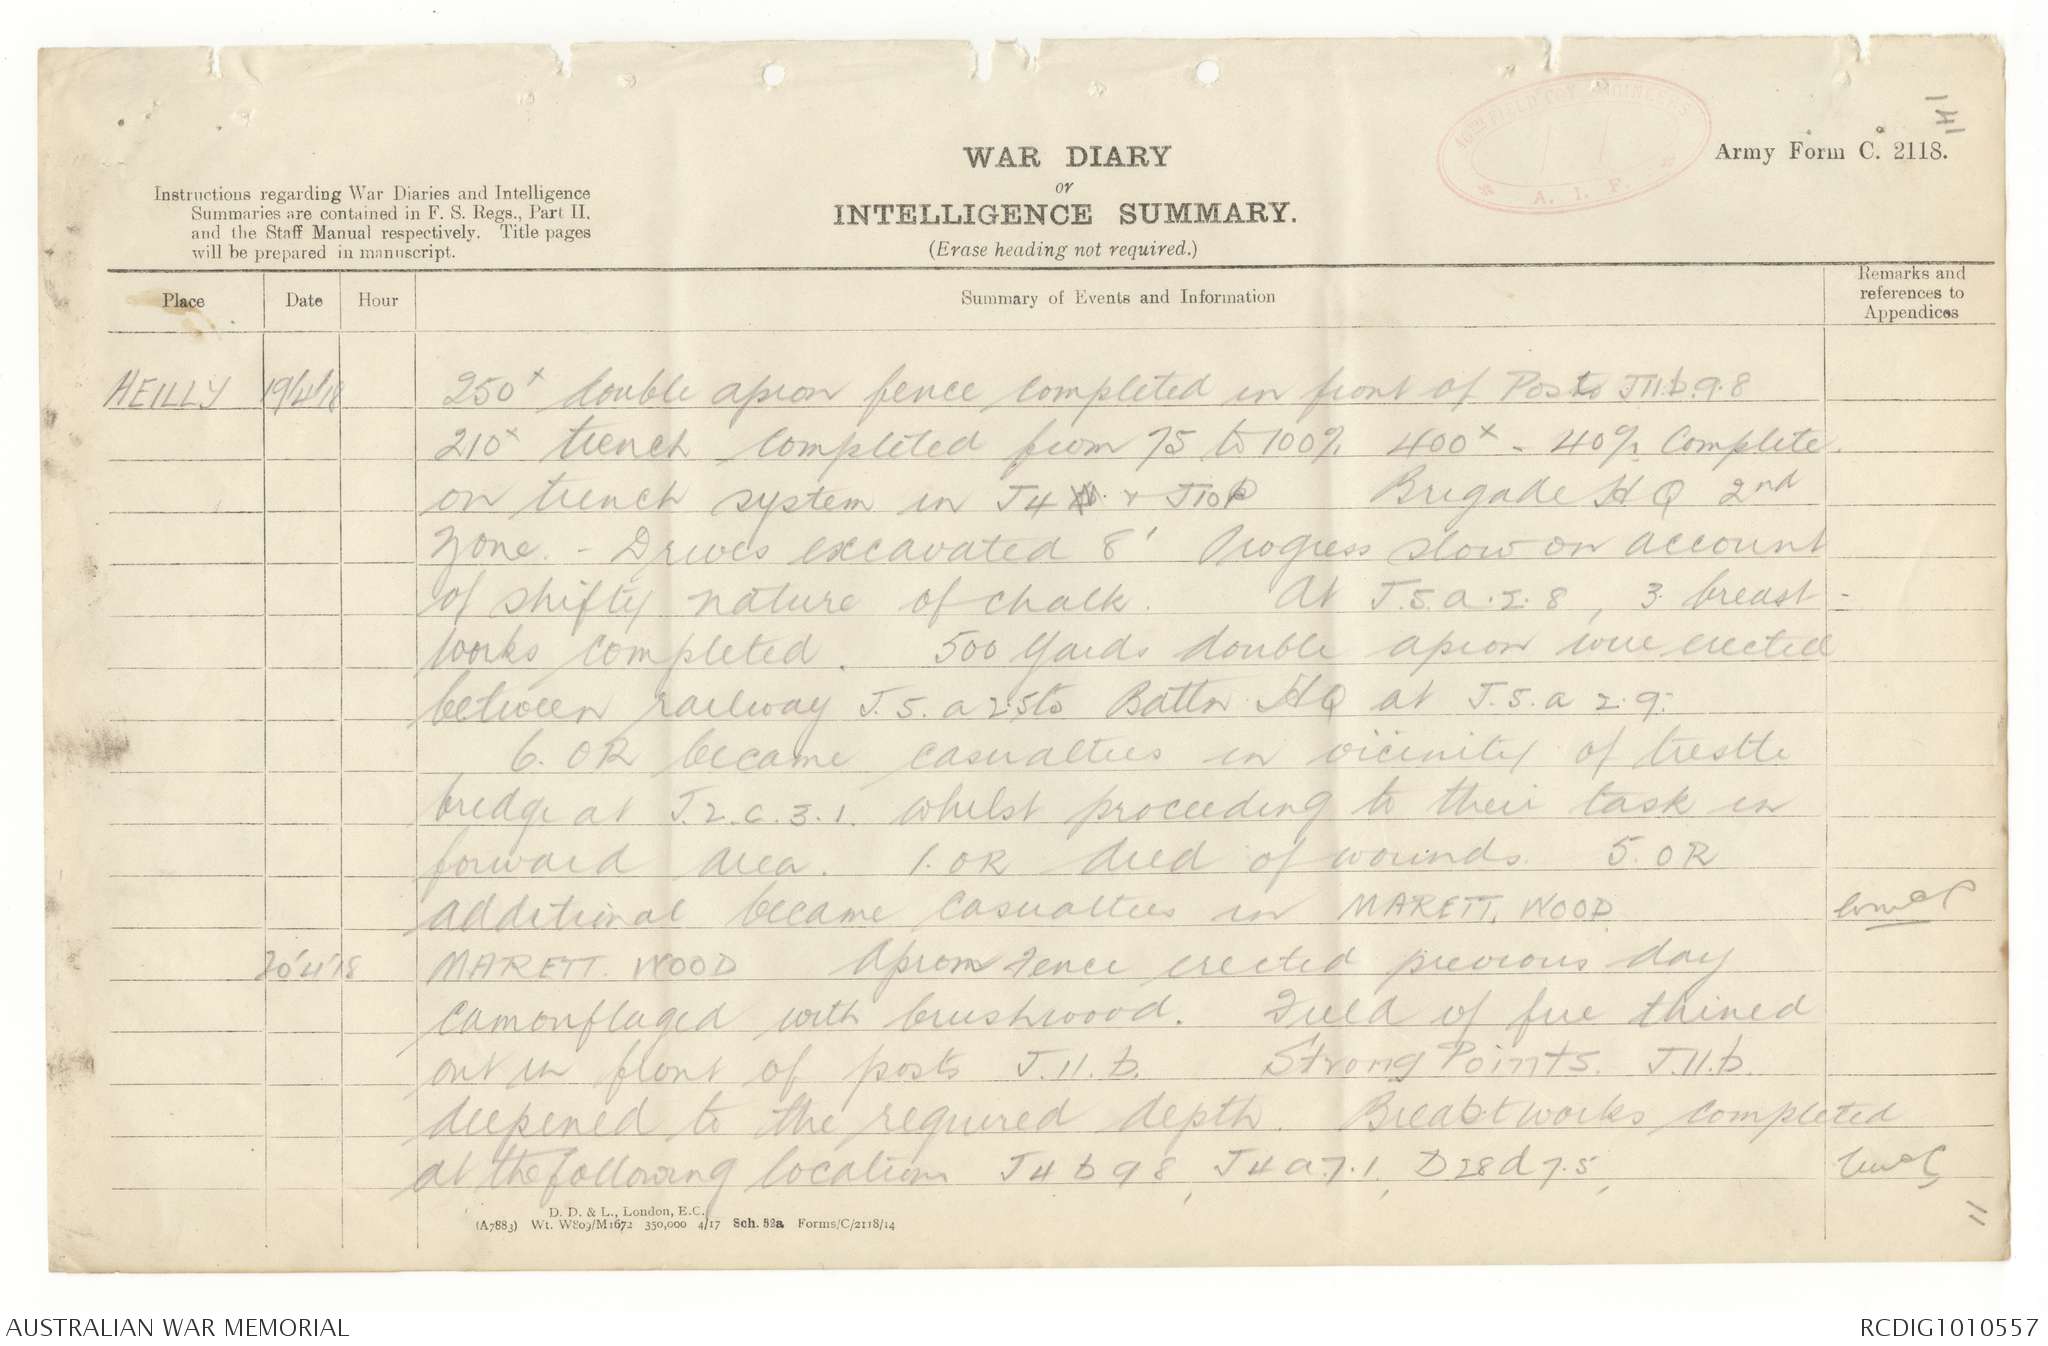 141
10TH FIELD COY ENGINEERS
A. I. F.
Army Form C. 2118.
WAR DIARY
or
INTELLIGENCE SUMMARY.
(Erase heading not required.)
Instructions regarding War Diaries and Intelligence
Summaries are contained in F. S. Regs., Part II.
and the Staff Manual respectively. Title pages
will be prepared in manuscript.
Place Date Hour Summary of Events and Information Remarks and
references to
Appendices
HEILLY 19/4/18 250x double apron fence completed in front of Posts J11.b.9.8
210x trench completed from 75 to 100% 400x - 40% Complete.
on trench system in J4 & J10b Brigade HQ 2nd
Zone. - Drives excavated 8' Progress slow on account
of shifty nature of chalk. At J.5.a.2.8, 3 breast-
works completed. 500 Yards double apron wire erected
between railway J.5.a 2.5 to Battn HQ at J.5.a 2.9.
6. OR became casualties in vicinity of trestle
bridge at J.2.c.3.1. whilst proceeding to their task in
forward area. 1. OR died of wounds. 5. OR
additional became casualties in MARETT. WOOD
20/4/18 MARETT. WOOD Apron Fence erected previous day
camouflaged with brushwood. Field of fire thined
out in front of posts J.11.b. Strong Points. J.11.b.
deepened to the required depth. Breastworks completed
at the following locations J4 b 9 8, J4 a.7.1, D28d 7.5,
11
D. D. & L., London, E.C.
(A7883) Wt. W809/M1672 350,000 4/17 Sch. 52a Forms/C/2118/14
AUSTRALIAN WAR MEMORIAL RCDIG1010557